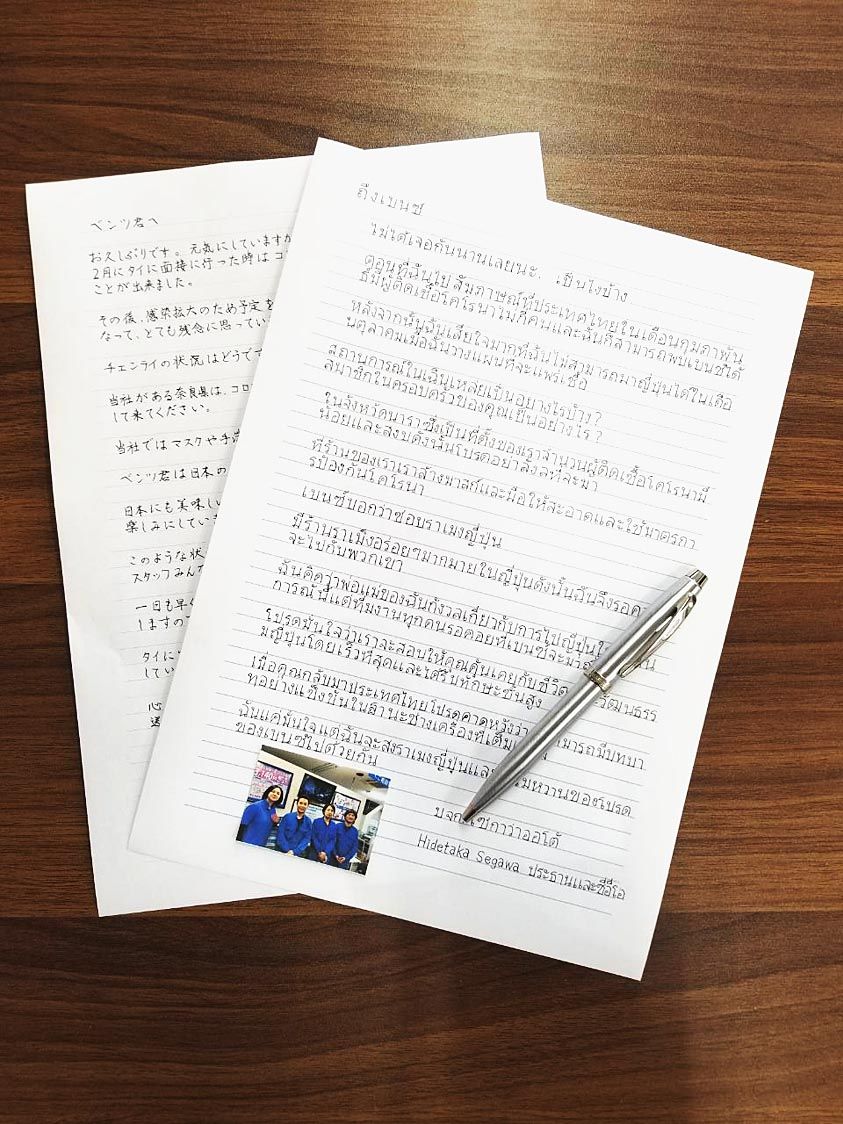 ベンツ君へ
お久しぶりです。元気にしていますか
2月にタイに面接に行った時はコ
ことが出来ました。
その後、感染拡大のため予定を
なって、とても残念に思ってい
チェンライの状況はどうです
当社がある奈良県は、コロ
して来てください。
当社ではマスクや手洗
ベンツ君は日本の
日本にも美味しい
楽しみにしていま
このような状
スタッフみんな
一日も早く
しますので
タイに
してい
心
ถึงเบนซ์
ไม่ได้เจอกันนานเลยนะ. เป็นไงบ้าง
ตอนที่ฉันไปสัมภาษณ์ที่ประเทศไทยในเดือนกุมภาพัน
ธ์มีผู้ติดเชื้อโคโรนาไม่กี่คนและฉันก็สามารถพบเบนซ์ได้
หลังจากนั้นฉันเสียใจมากที่ฉันไม่สามารถมาญี่ปุ่นได้ในเดือ
นตุลาคมเมื่อฉันวางแผนที่จะแพร่เชื้อ
สถานการณ์ในเฉินเหล่ยเป็นอย่างไรบ้าง?
สมาชิกในครอบครัวของคุณเป็นอย่างไร?
ในจังหวัดนาราซึ่งเป็นที่ตั้งของเราจำนวนผู้ติดเชื้อโคโรนามี
น้อยและสงบดังนั้นโปรดอย่าลังเลที่จะมา
ที่ร้านของเราเราล้างมาสก์และมือให้สะอาดและใช้มาตรกา
รป้องกันโคโรนา
เบนซ์บอกว่าชอบราเมงญี่ปุ่น
มีร้านราเม็งอร่อยๆมากมายในญี่ปุ่นดังนั้นฉันจึงรอค
จะไปกับพวกเขา
ฉันคิดว่าพ่อแม่ของฉันกังวลเกี่ยวกับการไปญี่ปุ่นใ
การณ์นี้แต่ทีมงานทุกคนรอคอยที่เบนซ์จะมา
โปรดมั่นใจว่าเราจะสอนให้คุณคุ้นเคยกับชีวิต วัฒนธรร
มญี่ปุ่นโดยเร็วที่สุดและได้รับทักษะขั้นสูง
เมื่อคุณกลับมาประเทศไทยโปรดคาดหวังว่า สามารถมีบทบา
ทอย่างแข็งขันในฐานะช่างเครื่องที่เต็ม
ฉันแค่มั่นใจแต่ฉันจะส่งราเมงญี่ปุ่นและ มหวานของโปรด
ของเบนซ์ไปด้วยกัน
เซกาว่าออโต้
Hidetaka Segawa ประธานและซีอีโอ